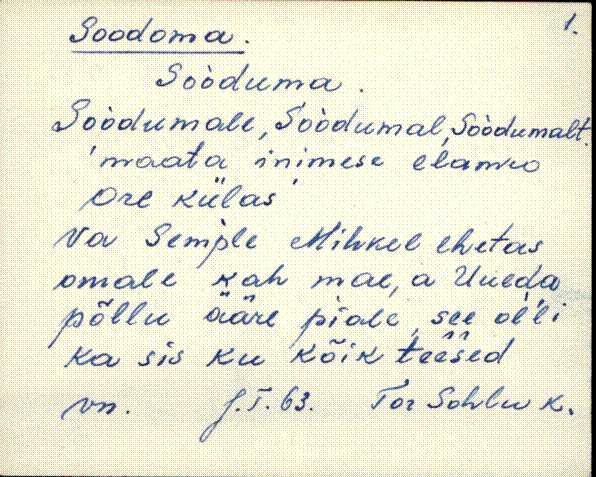 1.
Soodoma.
Sòòduma.
Sòòdumale, Sòòdumal, Sòòdumalt.
'maata inimese elamuo
Ore külas
Va Semple Mihkel ehetas
omale kah mae, a Uueda
põllu ääre piale, see ol'li
ka sis ku kõik teesed
vn. J.T. 63. Tor Sohlu k.